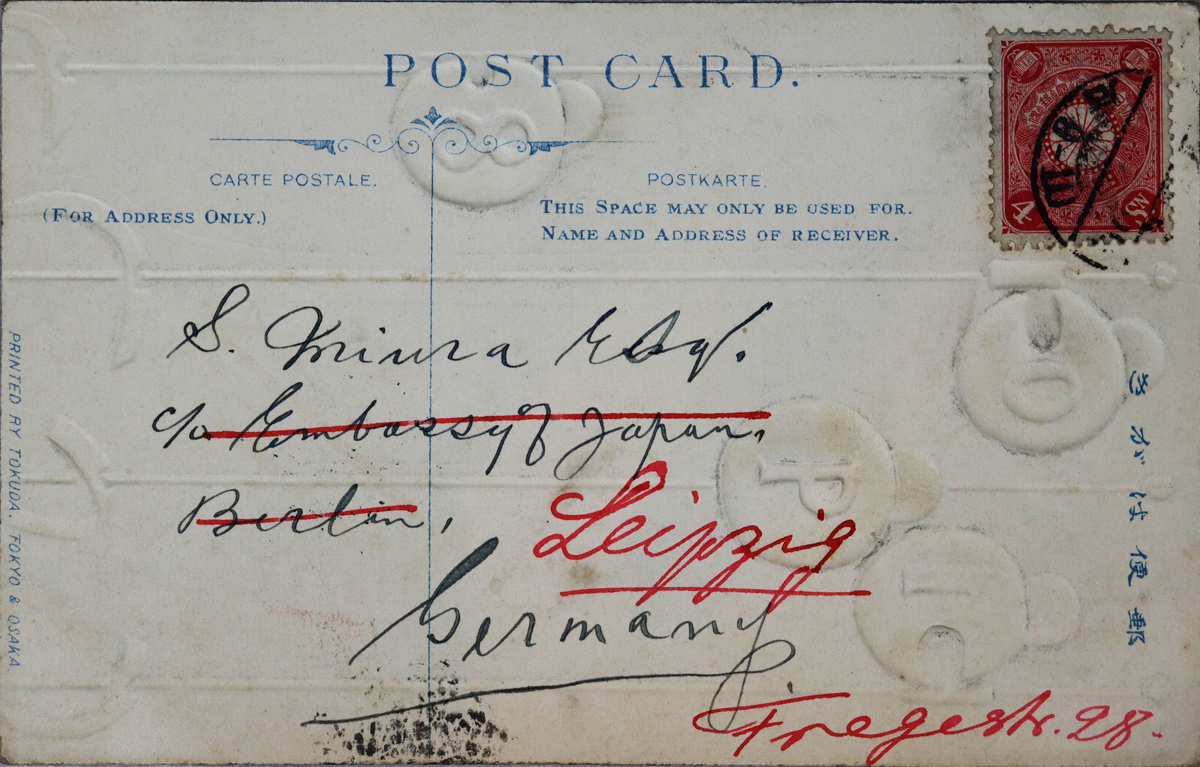 POST CARD.
CARTE POSTALE.
POSTKARTE.
(FOR ADDRESS ONLY.)
THIS SPACE MAY ONLY BE USED FOR.
NAME AND ADDRESS OF RECEIVER.
4
SN
S. Miura Esq.
c/o Embassy of Japan,
Berlin,
Leipzig
Germany
Fregestr. 28.
PRINTED BY TOKUDA. TOKYO & OSAKA
きがは便郵